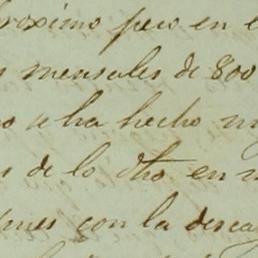 próximo pero en e
mensales de 800
o se ha hecho
s de lo dho en
ones con la desca